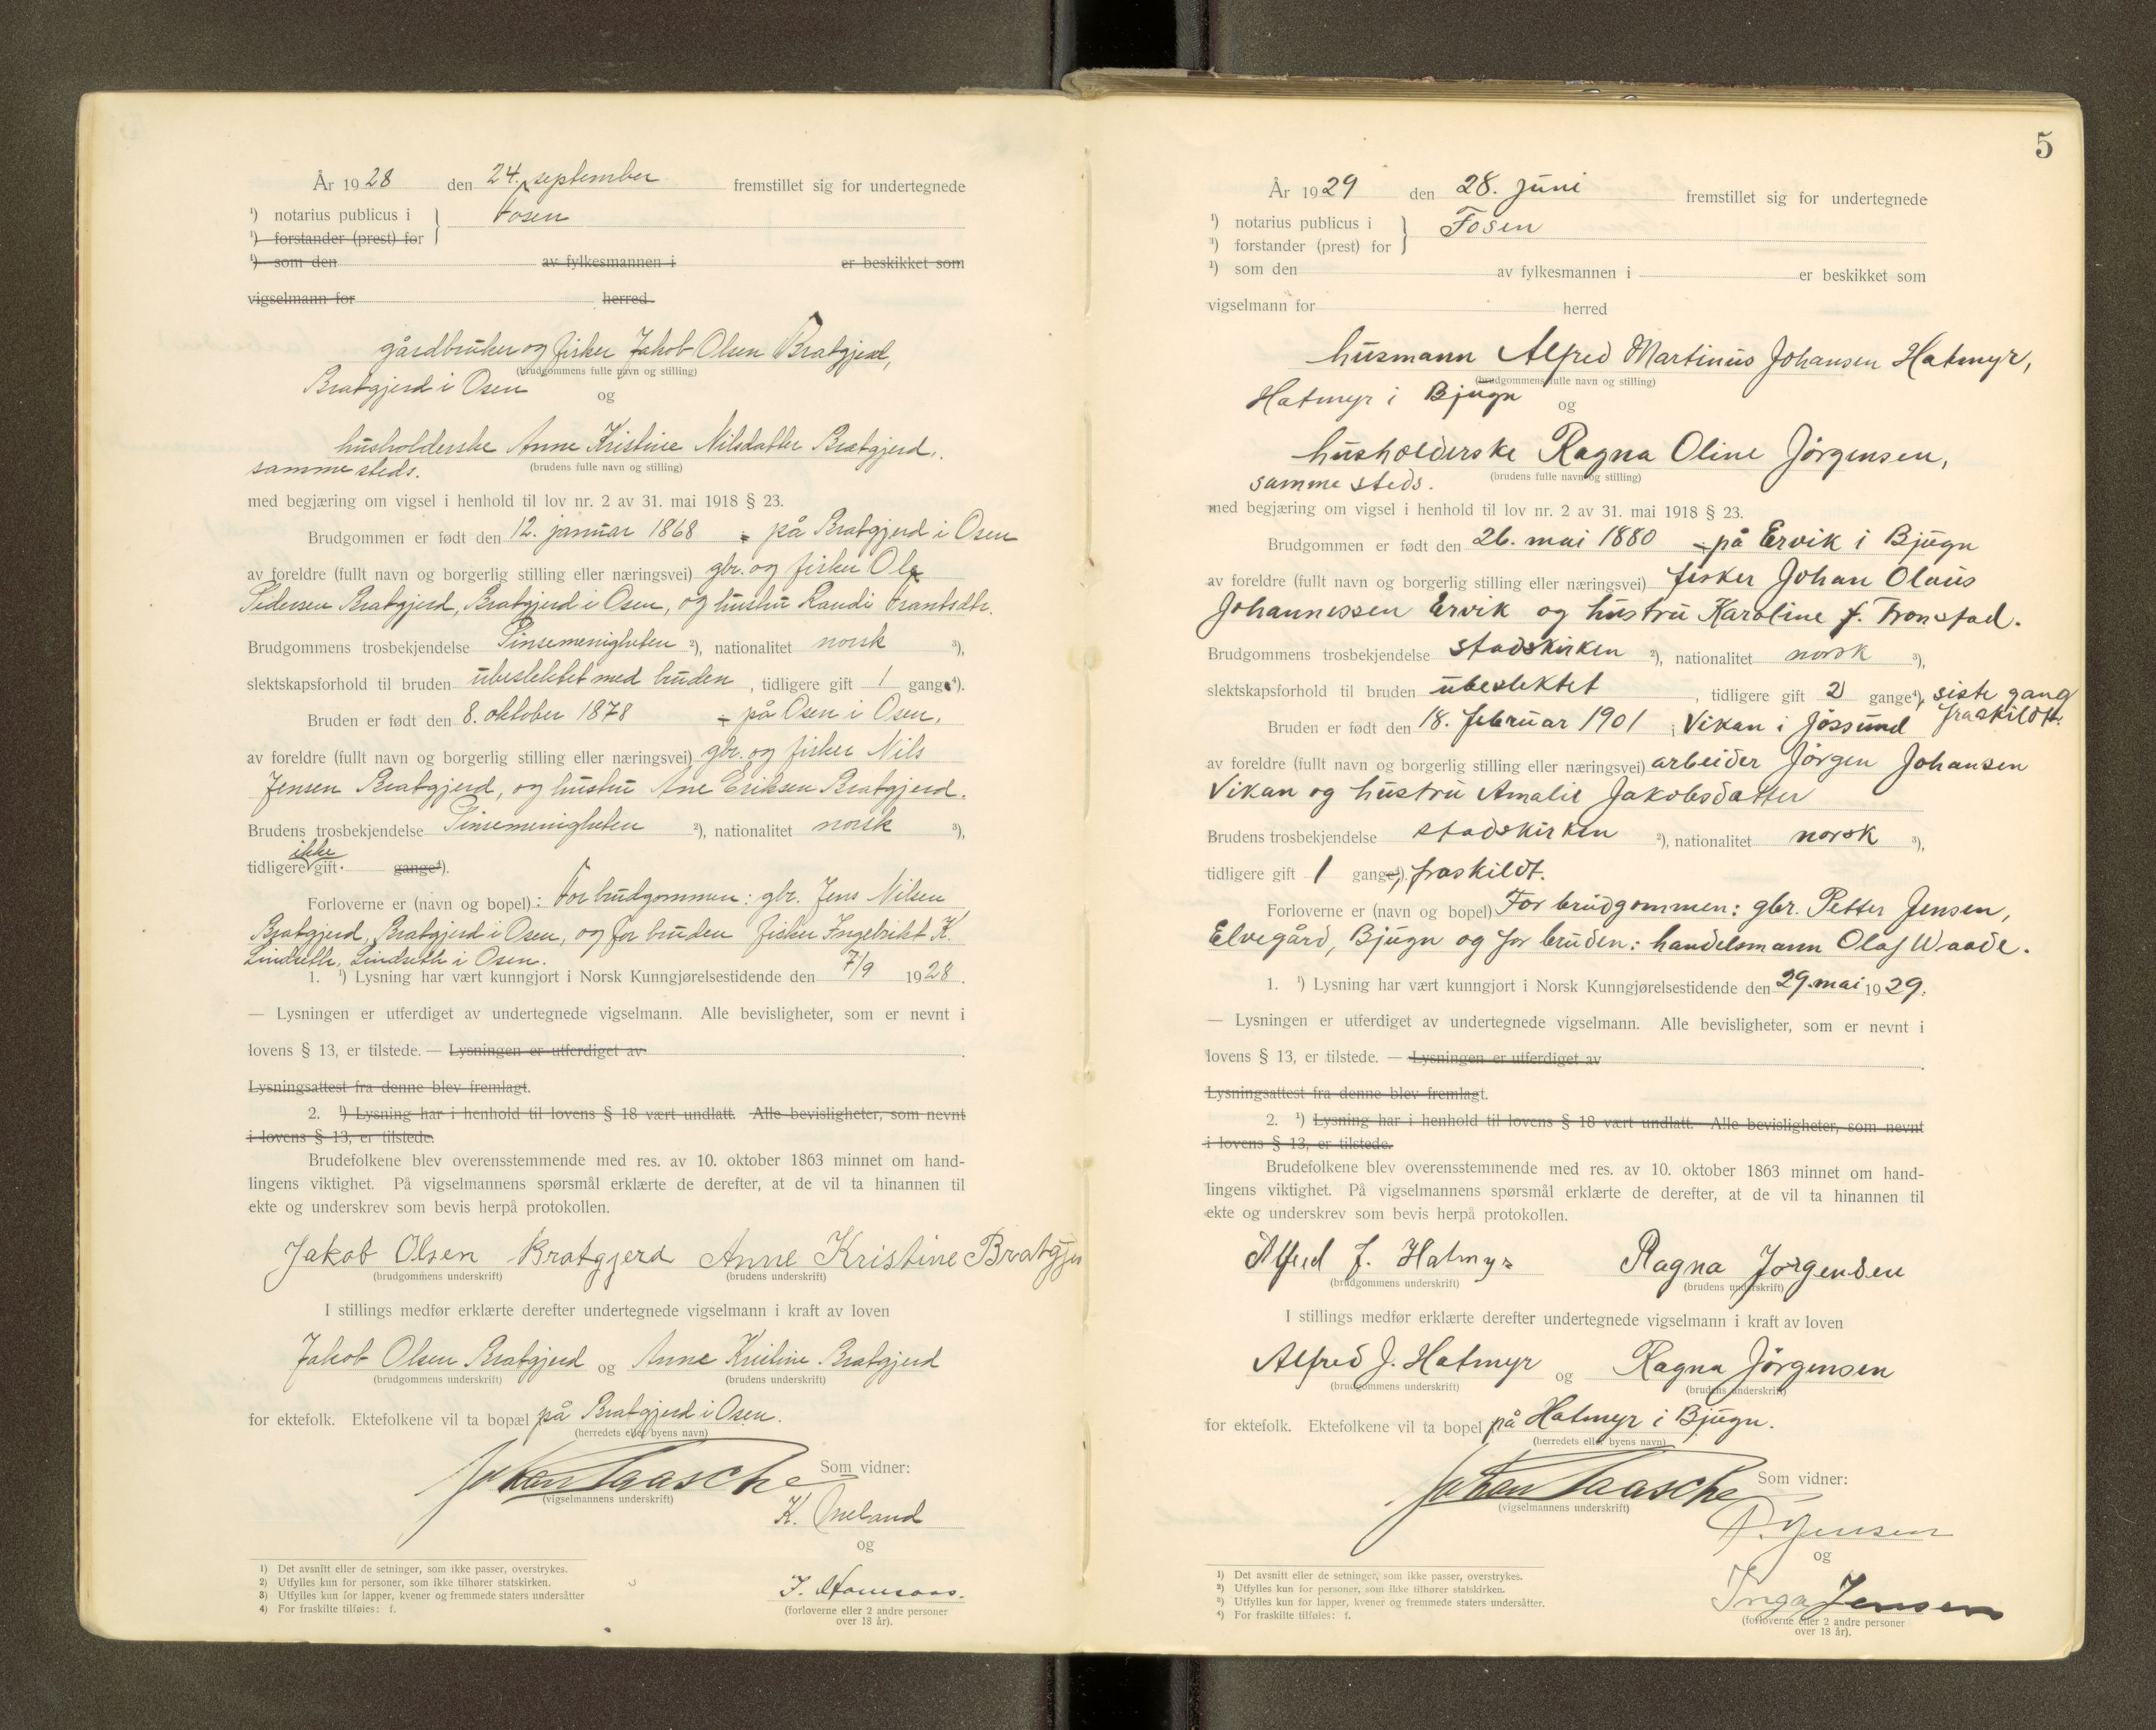 År 1928 den 24. september fremstillet sig for undertegnede
¹) notarius publicus i } Fosen
¹) forstander (prest) for
¹) som den av fylkesmannen i er beskikket som
vigselmann for herred
gårdbruker og fisker Jakob Olsen Bratgjerd,
(brudgommens fulle navn og stilling)
Bratgjerd i Osen
og
husholderske Anne Kristine Nilsdatter Bratgjerd,
(brudens fulle navn og stilling)
samme steds.
med begjæring om vigsel i henhold til lov nr. 2 av 31. mai 1918 § 23.
Brudgommen er født den 12. januar 1868 på Bratgjerd i Osen
av foreldre (fullt navn og borgerlig stilling eller næringsvei) gbr. og fisker Ole
Pedersen Bratgjerd, Bratgjerd i Osen, og hustru Randi Frantsdtr.
Brudgommens trosbekjendelse Pinsemenigheten ²), nationalitet norsk ³),
slektskapsforhold til bruden ubeslektet med bruden, tidligere gift 1 gang ⁴).
Bruden er født den 8. oktober 1878 på Osen i Osen,
av foreldre (fullt navn og borgerlig stilling eller næringsvei) gbr. og fisker Nils
Jensen Bratgjerd, og hustru Ane Eriksen Bratgjerd.
Brudens trosbekjendelse Pinsemenigheten ²), nationalitet norsk ³),
ikke
tidligere gift gange⁴).
Forloverne er (navn og bopel): For brudgommen: gbr. Jens Nilsen
Bratgjerd, Bratgjerd i Osen, og for bruden fisker Ingebrikt K.
Lindseth, Lindseth i Osen.
1. ¹) Lysning har vært kunngjort i Norsk Kunngjørelsestidende den 7/9 1928.
— Lysningen er utferdiget av undertegnede vigselmann. Alle bevisligheter, som er nevnt i
lovens § 13, er tilstede. — Lysningen er utferdiget av
Lysningsattest fra denne blev fremlagt.
2. ¹) Lysning har i henhold til lovens § 18 vært undlatt. Alle bevisligheter, som nevnt
i lovens § 13, er tilstede.
Brudefolkene blev overensstemmende med res. av 10. oktober 1863 minnet om hand-
lingens viktighet. På vigselmannens spørsmål erklærte de derefter, at de vil ta hinannen til
ekte og underskrev som bevis herpå protokollen.
Jakob Olsen Bratgjerd Anne Kristine Bratgjer
(brudgommens underskrift) (brudens underskrift)
I stillings medfør erklærte derefter undertegnede vigselmann i kraft av loven
Jakob Olsen Bratgjerd og Anne Kristine Bratgjerd
(brudgommens underskrift) (brudens underskrift)
for ektefolk. Ektefolkene vil ta bopæl på Bratgjerd i Osen.
(herredets eller byens navn)
Johan Paasche Som vidner:
(vigselmannens underskrift)
K.
og
J.
(forloverne eller 2 andre personer
over 18 år).
1) Det avsnitt eller de setninger, som ikke passer, overstrykes.
2) Utfylles kun for personer, som ikke tilhører statskirken.
3) Utfylles kun for lapper, kvener og fremmede staters undersåtter
4) For fraskilte tilføies: f.
5
År 1929 den 28. juni fremstillet sig for undertegnede
¹) notarius publicus i } Fosen
¹) forstander (prest) for
¹) som den av fylkesmannen i er beskikket som
vigselmann for herred
husmann Alfred Martinus Johansen Hatmyr,
(brudgommens fulle navn og stilling)
Hatmyr i Bjugn
og
husholderske Ragna Oline Jörgensen,
(brudens fulle navn og stilling)
samme steds.
med begjæring om vigsel i henhold til lov nr. 2 av 31. mai 1918 § 23.
Brudgommen er født den 26. mai 1880 på Ervik i Bjugn
av foreldre (fullt navn og borgerlig stilling eller næringsvei) fisker Johan Olaus
Johannessen Ervik og hustru Karoline f. Tronstad.
Brudgommens trosbekjendelse stadskirken ²), nationalitet norsk ³),
slektskapsforhold til bruden ubeslektet, tidligere gift 2 gange⁴), siste gang
fraskildt.
Bruden er født den 18. februar 1901 i Vikan i Jössund
av foreldre (fullt navn og borgerlig stilling eller næringsvei) arbeider Jörgen Johansen
Vikan og hustru Amalie Jakobsdatter
Brudens trosbekjendelse stadskirken ²), nationalitet norsk ³),
tidligere gift 1 gange⁴), fraskildt.
Forloverne er (navn og bopel) For brudgommen: gbr. Petter Jensen,
Elvegård, Bjugn og for bruden: handelsmann Olaf Waade.
1. ¹) Lysning har vært kunngjort i Norsk Kunngjørelsestidende den 29. mai 1929.
— Lysningen er utferdiget av undertegnede vigselmann. Alle bevisligheter, som er nevnt i
lovens § 13, er tilstede. — Lysningen er utferdiget av
Lysningsattest fra denne blev fremlagt.
2. ¹) Lysning har i henhold til lovens § 18 vært undlatt. Alle bevisligheter, som nevnt
i lovens § 13, er tilstede.
Brudefolkene blev overensstemmende med res. av 10. oktober 1863 minnet om hand-
lingens viktighet. På vigselmannens spørsmål erklærte de derefter, at de vil ta hinannen til
ekte og underskrev som bevis herpå protokollen.
Alfred J. Hatmyr Ragna Jorgensen
(brudgommens underskrift) (brudens underskrift)
I stillings medfør erklærte derefter undertegnede vigselmann i kraft av loven
Alfred J. Hatmyr og Ragna Jörgensen
(brudgommens underskrift) (brudens underskrift)
for ektefolk. Ektefolkene vil ta bopel på Hatmyr i Bjugn.
(herredets eller byens navn)
Johan Paasche Som vidner:
(vigselmannens underskrift)
P. Jensen
og
Inga Jensen
(forloverne eller 2 andre personer
over 18 år).
¹) Det avsnitt eller de setninger, som ikke passer, overstrykes.
²) Utfylles kun for personer, som ikke tilhører statskirken.
³) Utfylles kun for lapper, kvener og fremmede staters undersåtter.
⁴) For fraskilte tilføies: f.